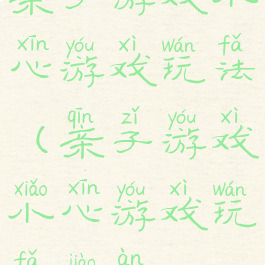 亲子游戏小
xīn yóu xì wán fǎ
心游戏玩法
qīn zǐ yóu xì
(亲子游戏
xiǎo xīn yóu xì wán
小心游戏玩
fǎ jiào àn